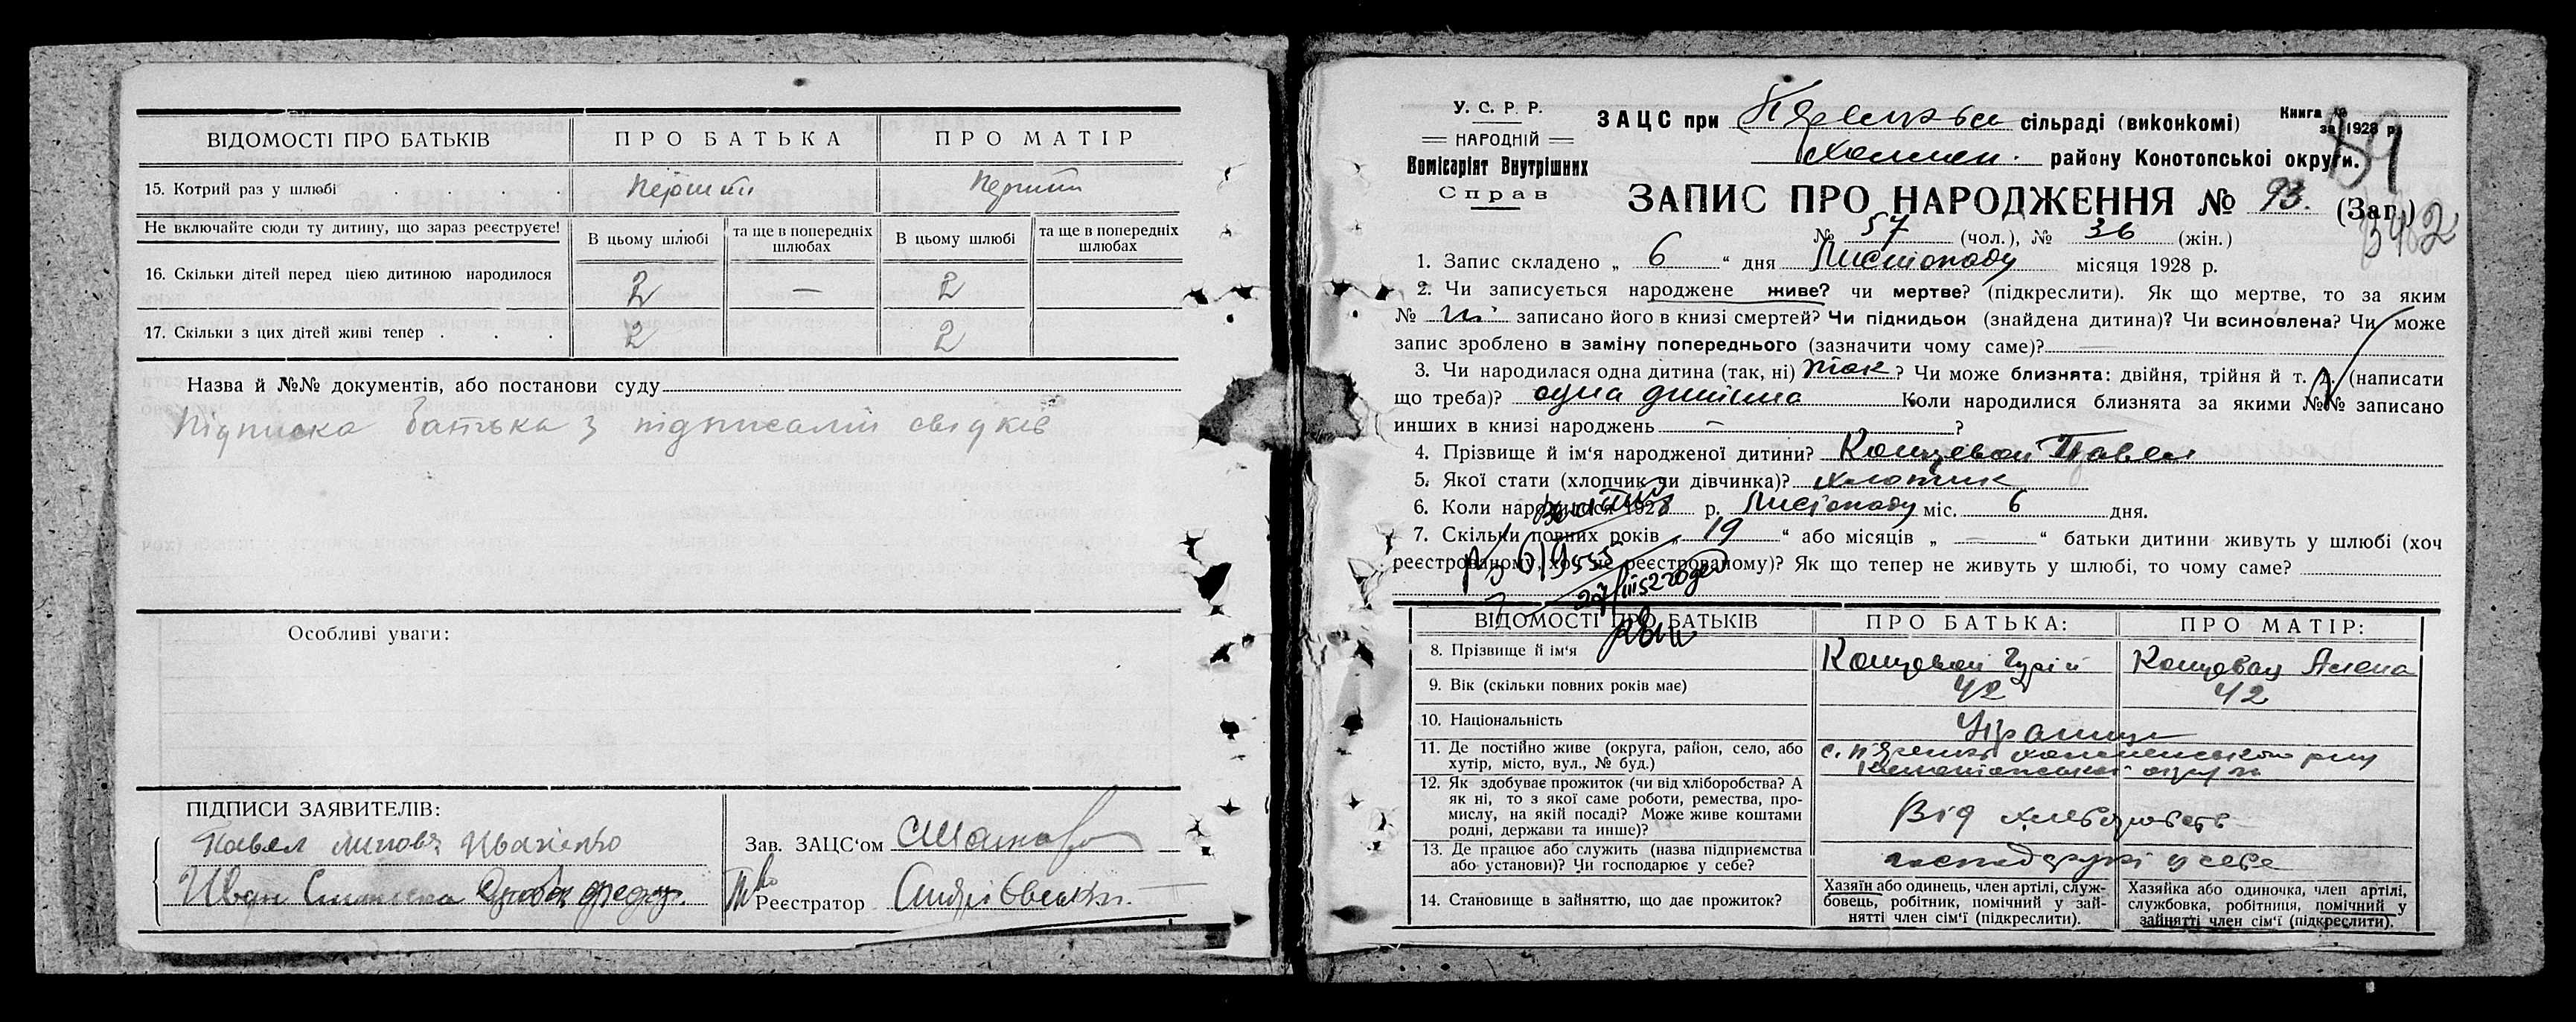 ВІДОМОСТІ ПРО БАТЬКІВ
ПРО БАТЬКА
ПРО МАТІР
15. Котрий раз у шлюбі . . . .
Не включайте сюди ту дитину, що зараз реєструєте!
В цьому шлюбі
та ще в попередніх шлюбах
В цьому шлюбі
та ще в попередніх шлюбах
16. Скільки дітей перед цією дитиною народилося
2 — 2
17. Скільки з цих дітей живі тепер . . .
2 2
Назва й №№ документів, або постанови суду
Підписка батька з підписами свідків
Особливі уваги:
ПІДПИСИ ЗАЯВИТЕЛІВ:
Павел
Иван
Зав. ЗАЦС'ом
Реєстратор
У. С. Р. Р.
НАРОДНІЙ
Комісаріят Внутрішних
Справ
ЗАЦС при сільраді (виконкомі)
району Конотопської округи.
Книга №
за 1928 р.
ЗАПИС ПРО НАРОДЖЕННЯ № 93. (Заг.)
№ 57 (чол.), № 36 (жін.)
1. Запис складено „ 6 “ дня Листопаду місяця 1928 р.
2. Чи записується народжене живе? чи мертве? (підкреслити). Як що мертве, то за яким
№ записано його в книзі смертей? Чи підкидьок (знайдена дитина)? Чи всиновлена? Чи може
запис зроблено в заміну попереднього (зазначити чому саме)?
3. Чи народилася одна дитина (так, ні) так ? Чи може близнята: двійня, трійня й т. д. (написати
що треба)? одна дитина Коли народилися близнята за якими №№ записано
инших в книзі народжень — ?
4. Прізвище й ім'я народженої дитини? Концевой Павел
5. Якої стати (хлопчик чи дівчинка)? хлопчик
6. Коли народилися 1928 р. Листопаду міс. 6 дня.
7. Скільки повних років „ 19 “ або місяців „ — “ батьки дитини живуть у шлюбі (хоч
реєстрованому, хоч не реєстрованому)? Як що тепер не живуть у шлюбі, то чому саме?
ВІДОМОСТІ ПРО БАТЬКІВ
ПРО БАТЬКА:
ПРО МАТІР:
8. Прізвище й ім'я
Концевой Гурій
Концевая Алена
9. Вік (скільки повних років має)
42 42
10. Національність
11. Де постійно живе (округа, район, село, або
хутір, місто, вул., № буд.)
12. Як здобуває прожиток (чи від хліборобства? А
як ні, то з якої саме роботи, ремества, про-
мислу, на якій посаді? Може живе коштами
родні, держави та инше)?
Від хліборобств
13. Де працює або служить (назва підприємства
або установи)? Чи господарює у себе?
господарює у себе
14. Становище в зайняттю, що дає прожиток?
Хазяїн або одинець, член артілі, служ-
бовець, робітник, помічний у зай-
нятті член сім'ї (підкреслити).
Хазяйка або одиночка, член артілі,
службовка, робітниця, помічний у
зайнятті член сім'ї (підкреслити).